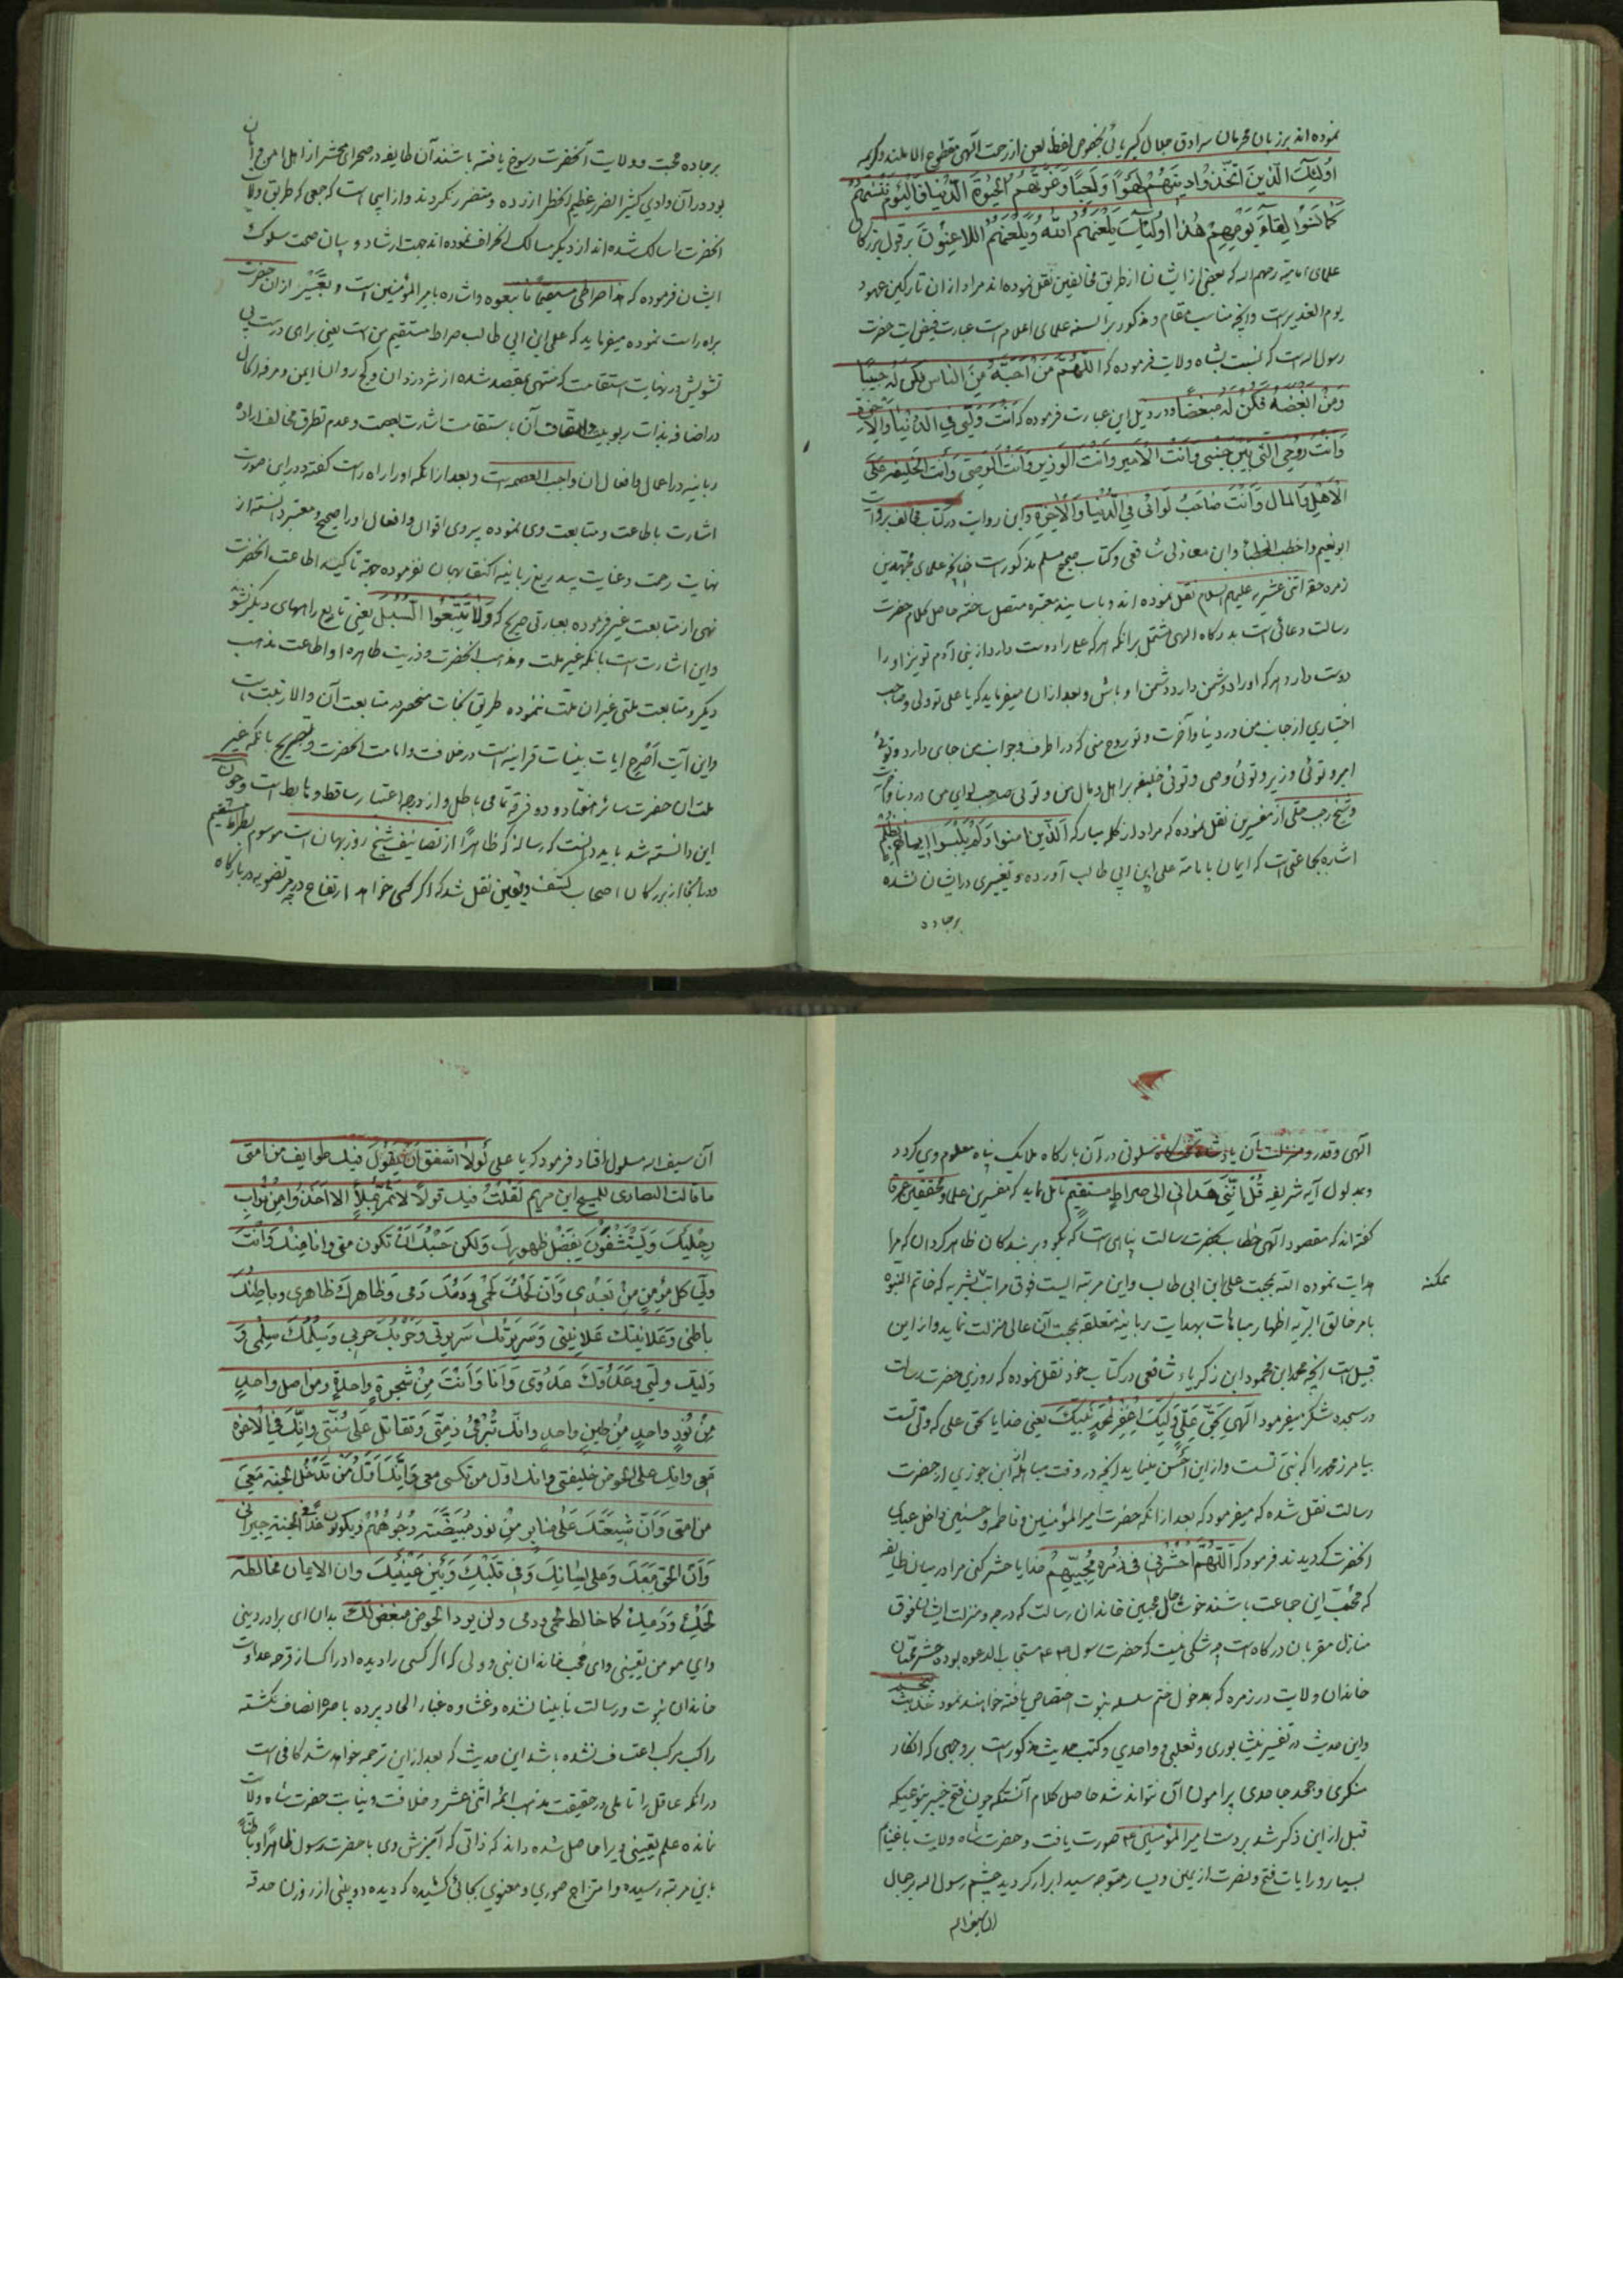 نموده اند بر زبان محرمان سرادق جلال کبریائی بخصوص لفظ لعن از رحمت آلهی مقطوع الا ملند و کریمه
اُولٰئِکَ الَّذینَ اتَّخَذُوا دِینَهُمْ لَهْوًا وَلَعِبًا وَغَرَّتْهُمُ الْحَیٰوةُ الدُّنْیَا فَالْیَوْمَ نَنْسٰیهُمْ
کَمَا نَسُوْا لِقَآءَ یَوْمِهِمْ هٰذَا اُولٰئِکَ یَلْعَنُهُمُ اللّٰهُ وَیَلْعَنُهُمُ اللاعِنُونَ بر قول بزرکان
علمای امامیه رحمهم اله که بعضی از ایشان از طریق مخالفین نقل نموده اند مراد از ان تارکین عهود
یوم الغدیر است وانچه مناسب مقام ومذکور بر السنه علمای اعلام است عبارت فیض ایت حضرت
رسول اله است که نسبت بشاه ولایت فرموده که اَللّٰهُمَّ مَنْ اَحَبَّهُ مِنَ النّاس فَکُنْ لَهُ حَبِیبًا
وَمَنْ اَبْغَضَهُ فَکُنْ لَهُ مُبْغِضًا ودر ذیل این عبارت فرموده که اَنْتَ وَلِیّی فِی الدُّنْیَا وَالْاٰخِرَةِ
وَاَنْتَ رُوْحِیَ الَّتی بَیْنَ جَنْبَیَّ وَاَنْتَ الْاَمیر وَاَنْتَ الْوَزیر وَاَنْتَ الْوَصِیّ وَاَنْتَ الْخَلِیفَه عَلَی
الْاَهْلِ وَالْمَال وَاَنْتَ صَاحِبُ لِوَائی فِی الدُّنْیَا وَالْاٰخِرَةِ واین روایت در کتاب مخالف بروایت
ابو نعیم و اخطب الخطبا وابن مغازلی شافعی وکتاب صحیح مسلم مذکور است چنانچه علمای مجتهدین
زمره حقه اثنی عشریه علیهم السلام نقل نموده اند وباسانید معتبره متصل ساخته حاصل کلام حضرت
رسالت دعائی است بدرکاه الهی مشتمل برانکه هر که علی را دوست دارد از بنی آدم تو نیز او را
دوست دار وهر که او را دشمن دارد دشمن او باش وبعد از ان میفرماید که یا علی تو ولی وصاحب
اختیاری از جانب من در دنیا و آخرت وتو روح منی که در اطرف وجوانب من جای دارد وتوئی
امیر وتوئی وزیر وتوئی وصی وتوئی خلیفه بر اهل ومال من وتوئی صاحب لوای من در دنیا وآخرت
وشیخ رجب حلی از مفسرین نقل نموده که مراد از کلمه مبارکه اَلَّذینَ اٰمنوا وَلَمْ یَلْبِسُوا اِیمانَهُمْ بِظُلْمٍ
اشاره بجماعتی است که ایمان بامامة علی ابن ابی طالب آورده وتغییری در ایشان نشده
بر جاده
بر جاده محبت وولایت آنحضرت رسوخ یافته باشند آن طایفه در صحرای محشر از اهل امن و امان
بود در آن وادی کثیر الضرر عظیم الخطر ازرده ومتضرر نکردند واز اینجاست که جمعی که طریق ولایت
انحضرت را سالک شده اند از دیکر مسالک انحراف نموده اند جهت ارشاد و بیان صحت سلوک
ایشان فرموده که هٰذا صِرَاطی مُسْتَقِیمًا فَاتَّبِعُوه واشاره بامیر المؤمنین است وتعبیر از ان حضرت
براه راست نموده میفرماید که علی ابن ابی طالب صراط مستقیم من است یعنی راهی درست بی
تشویش در نهایت استقامت که منتهی بمقصد شده از شر دزدان و کج روان ایمن ومرفه الحال
در اضافه بذات ربوبیت واتصاف آن باستقامت اشارت بعصمت وعدم تطرق مخالف اراده
ربانیه در اعمال وافعال ان واجب العصمه است وبعد از انکه او را راه راست کفته در این صورت
اشارت باطاعت ومتابعت وی نموده پیروی اقوال وافعال او را صحیح ومعتبر دانسته از
نهایت رحمت وغایت بیدریغ ربانیه اکتفا بهمان نفرموده بجهة تاکید اطاعت انحضرت
نهی از متابعت غیر فرموده بعبارتی صریح که وَلٰا تَتَّبِعُوا السُّبُلَ یعنی تابع راههای دیکر نشوید
واین اشارت است بانکه غیر ملت ومذهب انحضرت وذریت طاهره او اطاعت مذهب
دیکر ومتابعت ملتی غیر ان ملت ننموده طریق نجات منحصر در متابعت آن والا رتبت است
واین آیت اَصْرح ایات بینات قرانیه است در خلافت وامامت انحضرت وتصریح بانکه غیر
ملت ان حضرت سائر هفتاد و دو فرقه تمامی باطل و از درجه اعتبار ساقط وهابط است وچون
این دانسته شد باید دانست که رساله که ظاهرًا از تصانیف شیخ روزبهان است موسوم بصراط مستقیم
در انجا از بزرکان اصحاب کشف ویقین نقل شد که اکر کسی خواهد ارتفاع درجه مرتضویه در بارکاه
الهی وقدر ومنزلت آن پادشاه سلونی در آن بارکاه ملایک پناه معلوم وی کردد
وبمدلول آیه شریفه قُلْ اِنَّنی هَدَانی الی صراطٍ مستقیمٍ تامل نماید که مفسرین علما ومحققین عرفا
کفته اند که مقصود آلهی خطاب بحضرت رسالت پناهی است که بکو وبر بندکان ظاهر کردان که مرا
هدایت نموده الله بمحبت علی ابن ابی طالب واین مرتبه الیست فوق مراتب بشریه که خاتم النبوة
ممکنه
بامر خالق البریه اظهار مباهات بهدایت ربانیه متعلقه بمحبت آن عالی منزلت نماید واز این
قبیل است انچه محمد ابن محمود ابن زکریاء شافعی در کتاب خود نقل نموده که روزی حضرت رسالت
در سجده شکر میفرمود آلهی بِحَقِّ عَلِیٍّ وَلِیِّکَ اِغْفِر لِمُحَمَّدٍ نَبِیِّکَ یعنی خدایا بحق علی که ولی تست
بیامرز محمد را که نبی تست واز این اَحْسن مینماید انچه در وقت مباهله ابن جوزی از حضرت
رسالت نقل شده که میفرمود که بعد از انکه حضرت امیر المؤمنین وفاطمه وحسنین داخل عبای
انحضرت کردیدند فرمود که اَللّٰهُمَّ احْشُرْنی فی زُمْرة مُحِبّیهِمْ خدایا حشر کن مرا در میان طایفه
که محب این جماعت باشند خوشا حال محبین خاندان رسالت که درجه ومنزلت ایشان فوق
منازل مقربان درکاه است چه شکی نیست که حضرت رسول مستجاب الدعوه بوده حشر محبان
خاندان ولایت در زمره که بدخول ختم سلسله نبوت اختصاص یافته خواهند نمود حدیث
واین حدیث در تفسیر نیشابوری وثعلبی و واحدی وکتب حدیث مذکور است بر وجهی که انکار
منکری وجحد جاحدی پیرامون آن نتواند شد حاصل کلام آنستکه چون فتح خیبر بنوعیکه
قبل از این ذکر شد بر دست امیر المؤمنین صورت یافت وحضرت شاه ولایت با غنایم
بسیار و رایات فتح ونصرت از یمین ویسار متوجه سید ابرار کردید چشم رسول اله بر جمال
آن سیف اله
آن سیف اله مسلول افتاد فرمود که یا علی لَولاٰ اُشفق اَنْ یَقُولَ فیک طوایف من امتی
ما قالت النصاری للمسیح ابن مریم لَقُلْتُ فیک قولاً لاٰ تَمُرُّ بِمَلَأٍ الا اخَذُوا مِنْ تُرابِ
رِجْلَیْکَ وَیَسْتَشْفُونَ بِفَضْلِ طهورِکَ وَلکن حَسْبُکَ اَنْ تکون منی وانا مِنْکَ وَاَنْتَ
ولیّ کل مؤمِنٍ مِنْ بَعْدی وَاَنَّ لَحْمُکَ لَحْمی وَدَمُکَ دَمی وَظاهرکَ ظاهری وباطِنُکَ
باطنی وَعَلانیتکَ عَلانِیَتی وَسَریرَتُکَ سَریرتی وَحَرْبُکَ حَرْبی وَسِلْمُکَ سِلْمی وَ
وَلیّک ولیّی وَعَدُوّکَ عَدُوّی وَاَنَا وَاَنْتَ مِنْ شَجرةٍ واحدةٍ ومن اصلٍ واحدٍ
مِنْ نُورٍ واحدٍ مِنْ طینٍ واحدٍ وانّکَ تُبْرِئُ ذِمَّتی وَتقاتل عَلی سُنَّتی وَانِّکَ فی الْاٰخرة
مَعی وانک علی الحوض خلیفتی وانک اوّل من تکسی معی وَاِنَّکَ اَوَّلُ مَنْ تَدْخُلُ الجنة مَعی
من امتی وَاَنَّ شیعَتَکَ عَلیٰ منابر مِنْ نور مُبْیَضَّة وُجُوهُهُمْ ویکونون غَدًا فی الجنة جیرانی
وَاَنَّ الحق مَعَکَ وَعَلی لِسَانِکَ وَفی قَلْبِکَ وَبَیْنَ عَیْنَیْکَ وان الایمان مخالطه
لَحْمِکَ وَدَمِکَ کما خالط لحمی ودمی ولن یرد الحوض مبغض لَکَ بدان ای برادر دینی
وای مومن یقینی وای محب خاندان نبی وولی که اکر کسی را دیده ادراک از قرحه عداوت
خاندان نبوت ورسالت نابینا نشده وغشاوه غبار الحاد پرده باصره انصاف نکشته
راکب مرکب اعتساف نشده باشد این حدیث که بعد از این ترجمه خواهد شد کافی است
در انکه عاقل را تاملی در حقیقت مذهب ائمه اثنی عشر وخلافت ونیابت حضرت شاه ولایت
نمانده علم یقینی ویرا حاصل شده داند که ذاتی که آمیزش وی با حضرت رسول ظاهرًا وباطنًا
باین مرتبه رسیده وامتزاج صوری ومعنوی بجائی کشیده که دیده دو بینی از روزن حدقه